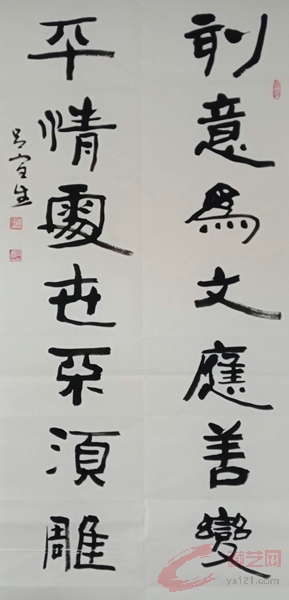 刻意爲文應善變
平情處世不須雕
艺网
ys121.com